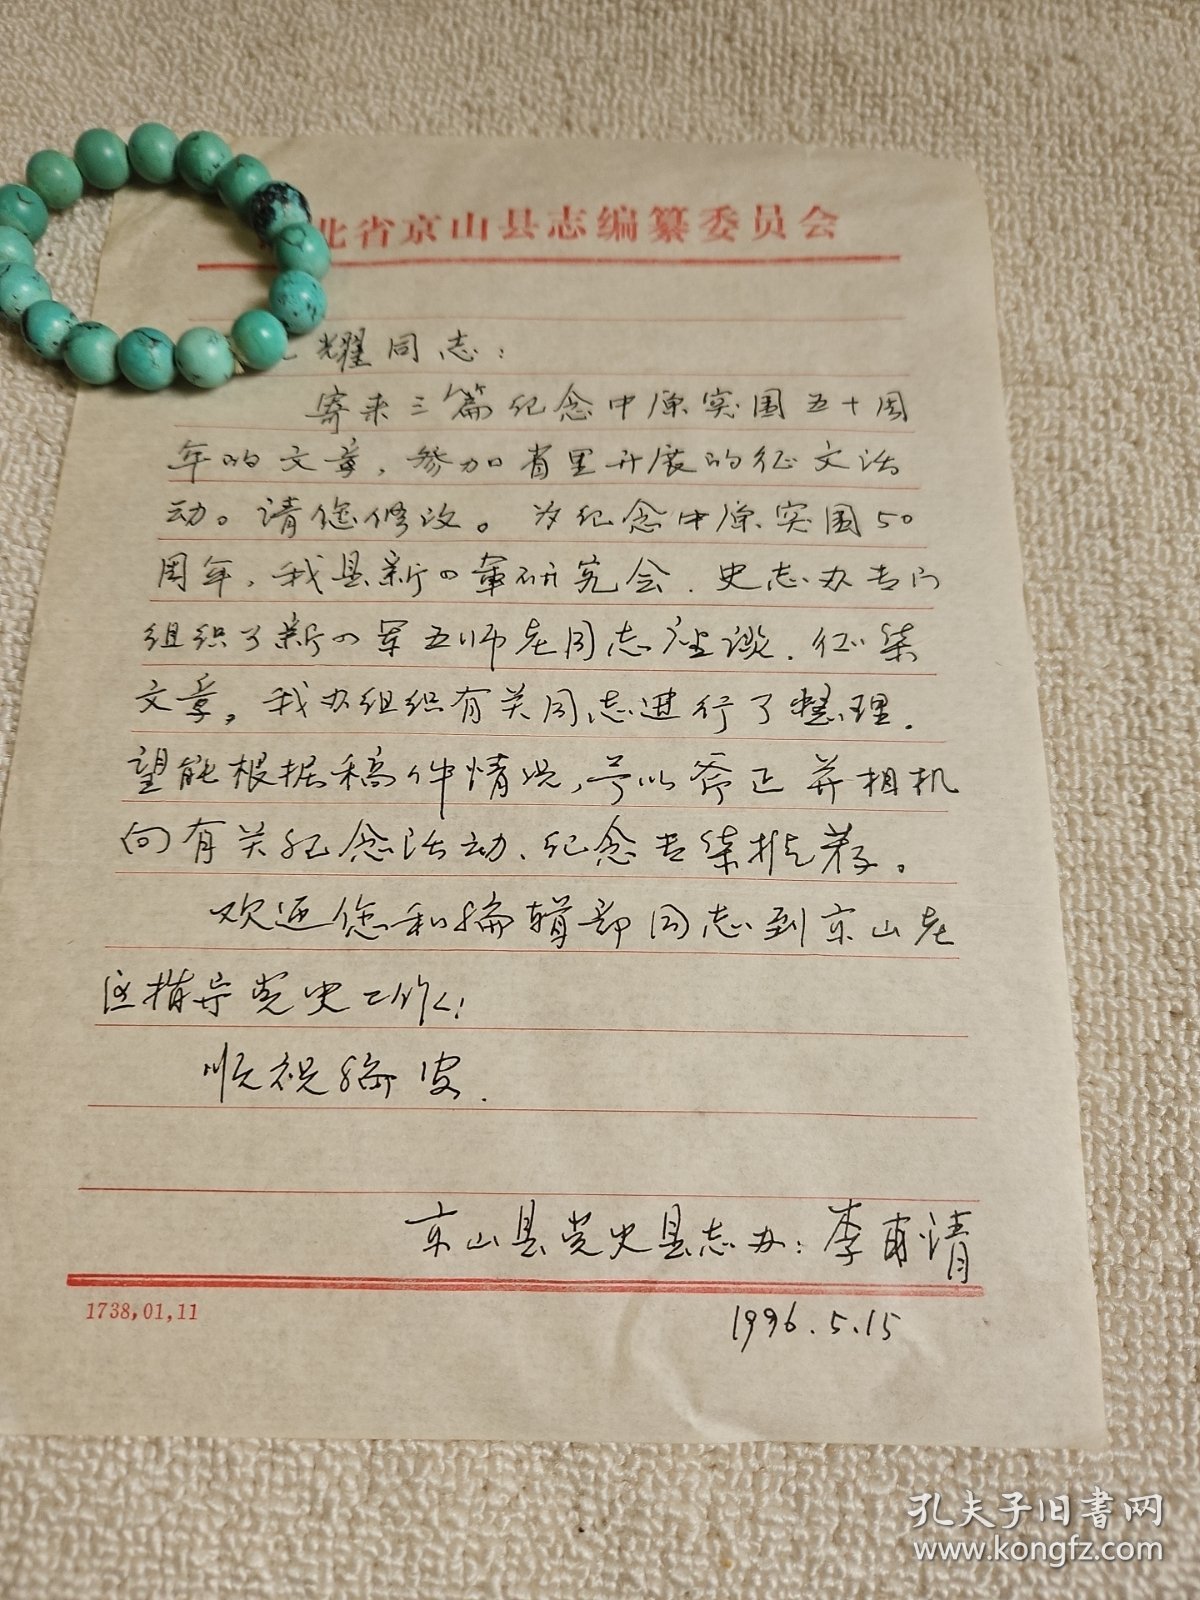 北省京山县志编纂委员会
耀同志：
寄来三篇纪念中原突围五十周
年的文章，参加省里开展的征文活
动。请您修改。为纪念中原突围50
周年，我县新四军研究会、史志办专门
组织了新四军五师老同志座谈、征集
文章，我办组织有关同志进行了整理，
望能根据稿件情况，予以斧正并相机
向有关纪念活动、纪念专集推荐。
欢迎您和编辑部同志到京山老
区指导党史工作！
顺祝编安.
京山县党史县志办：李甫清
1738,01,11
1996.5.15
孔夫子旧书网
www.kongfz.com